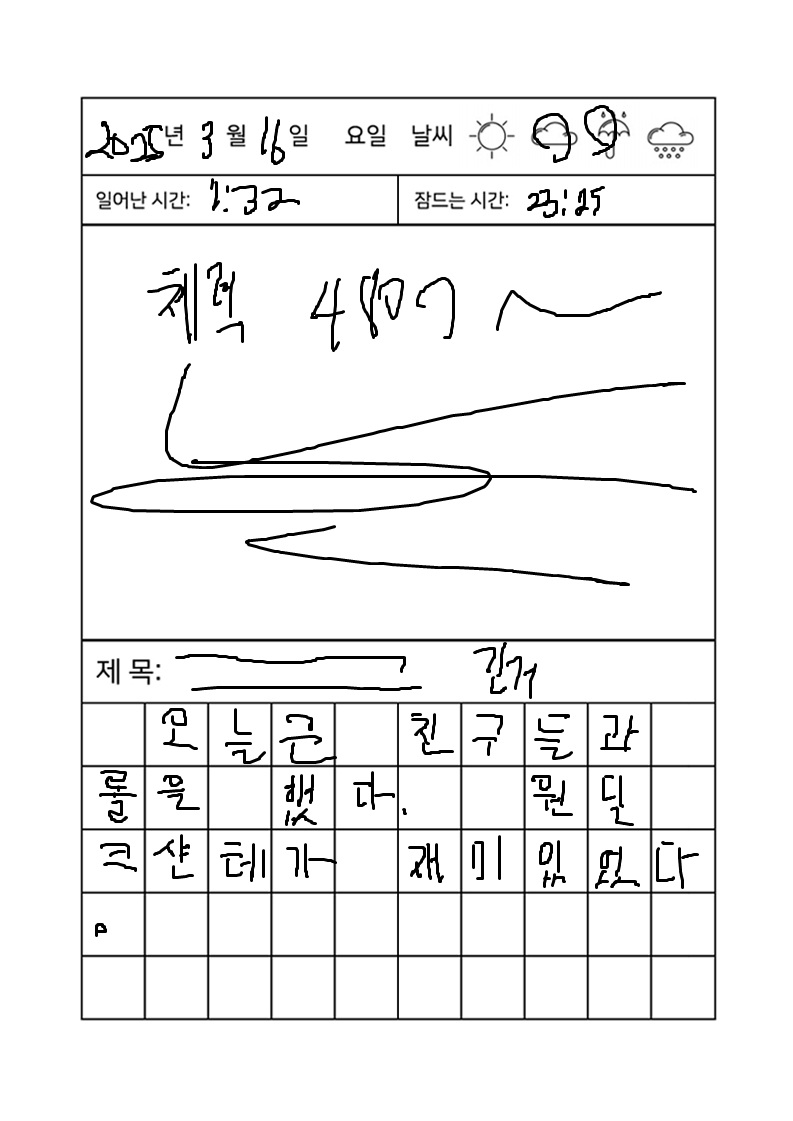 2025년 3월 16일 요일 날씨
일어난 시간: 7:32 잠드는 시간: 23:25
체력
제 목: 긴거
오늘은 친구들과
롤을 했다. 원딜
크샨테가 재미있었다
.